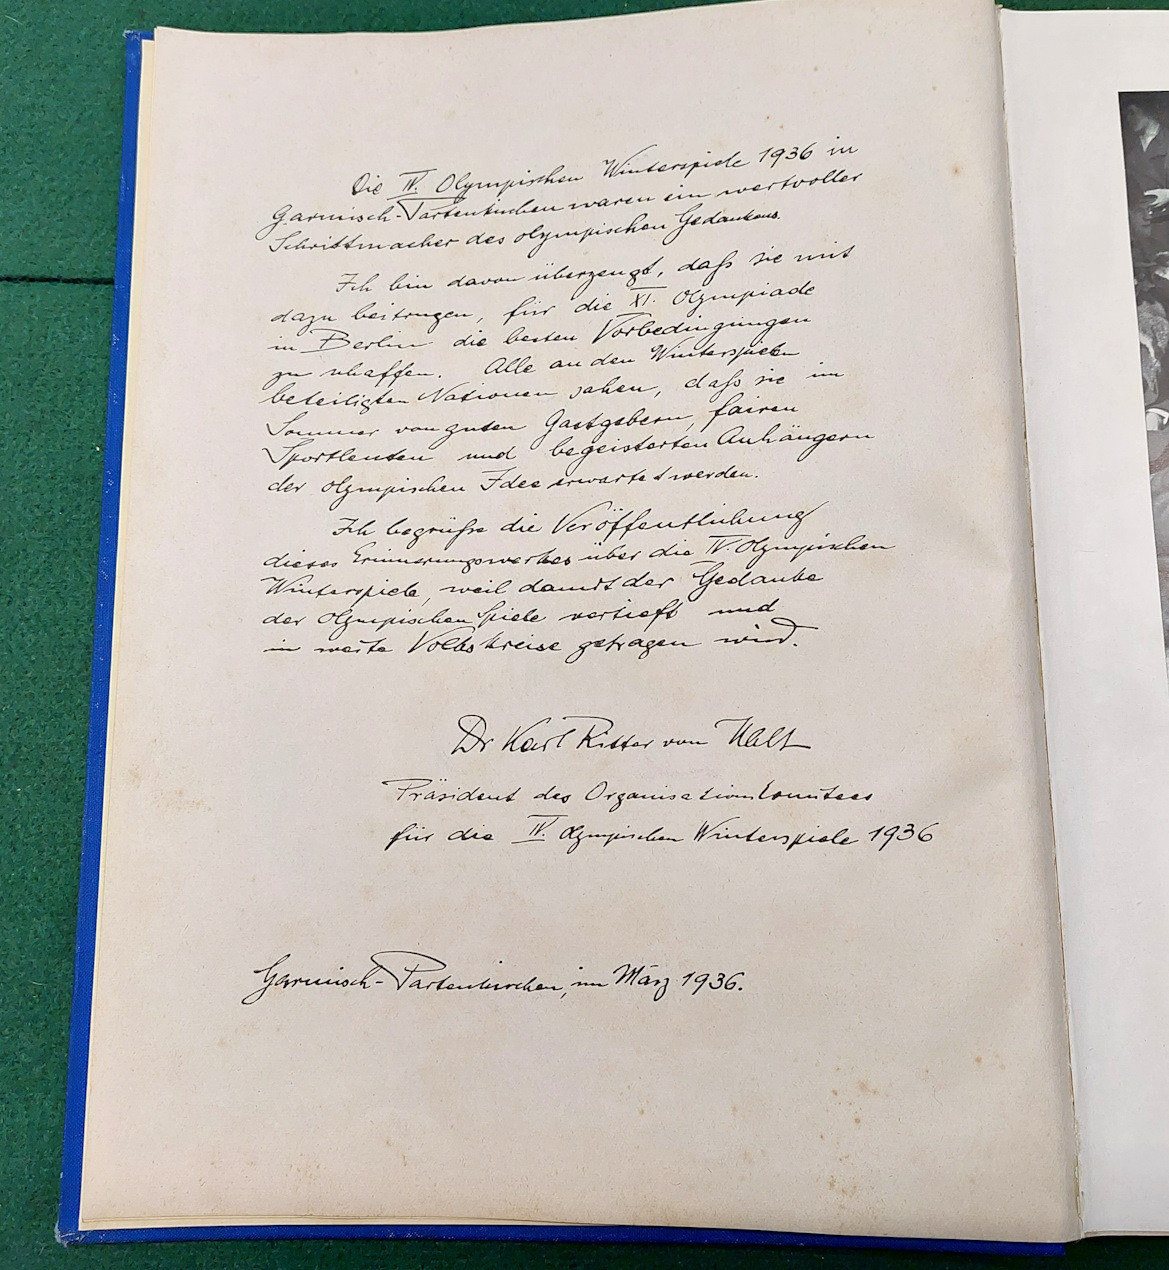 Die IV. Olympischen Winterspiele 1936 in
Garmisch-Partenkirchen waren ein wertvoller
Schrittmacher des olympischen Gedankens.
Ich bin davon überzeugt, daß sie mit
dazu beitrugen, für die XI. Olympiade
in Berlin die besten Vorbedingungen
zu schaffen. Alle an den Winterspielen
beteiligten Nationen sahen, daß sie im
Sommer von guten Gastgebern, fairen
Sportleuten und begeisterten Anhängern
der olympischen Idee erwartet werden.
Ich begrüße die Veröffentlichung
dieses Erinnerungswerkes über die IV. Olympischen
Winterspiele, weil damit der Gedanke
der olympischen Spiele vertieft und
in weite Volkskreise getragen wird.
Dr Karl Ritter von Halt
Präsident des Organisationskomitees
für die IV. Olympischen Winterspiele 1936
Garmisch-Partenkirchen, im März 1936.